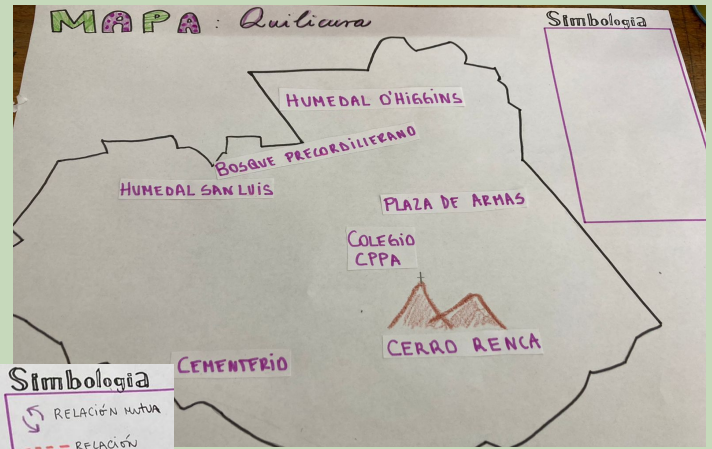 MAPA: Quilicura
Simbologia
HUMEDAL O'HIGGINS
BOSQUE PRECORDILIERANO
HUMEDAL SAN LUIS
PLAZA DE ARMAS
COLEGIO
CPPA
CERRO RENCA
CEMENTERIO
Simbologia
RELACIÓN MUTUA
RELACIÓN